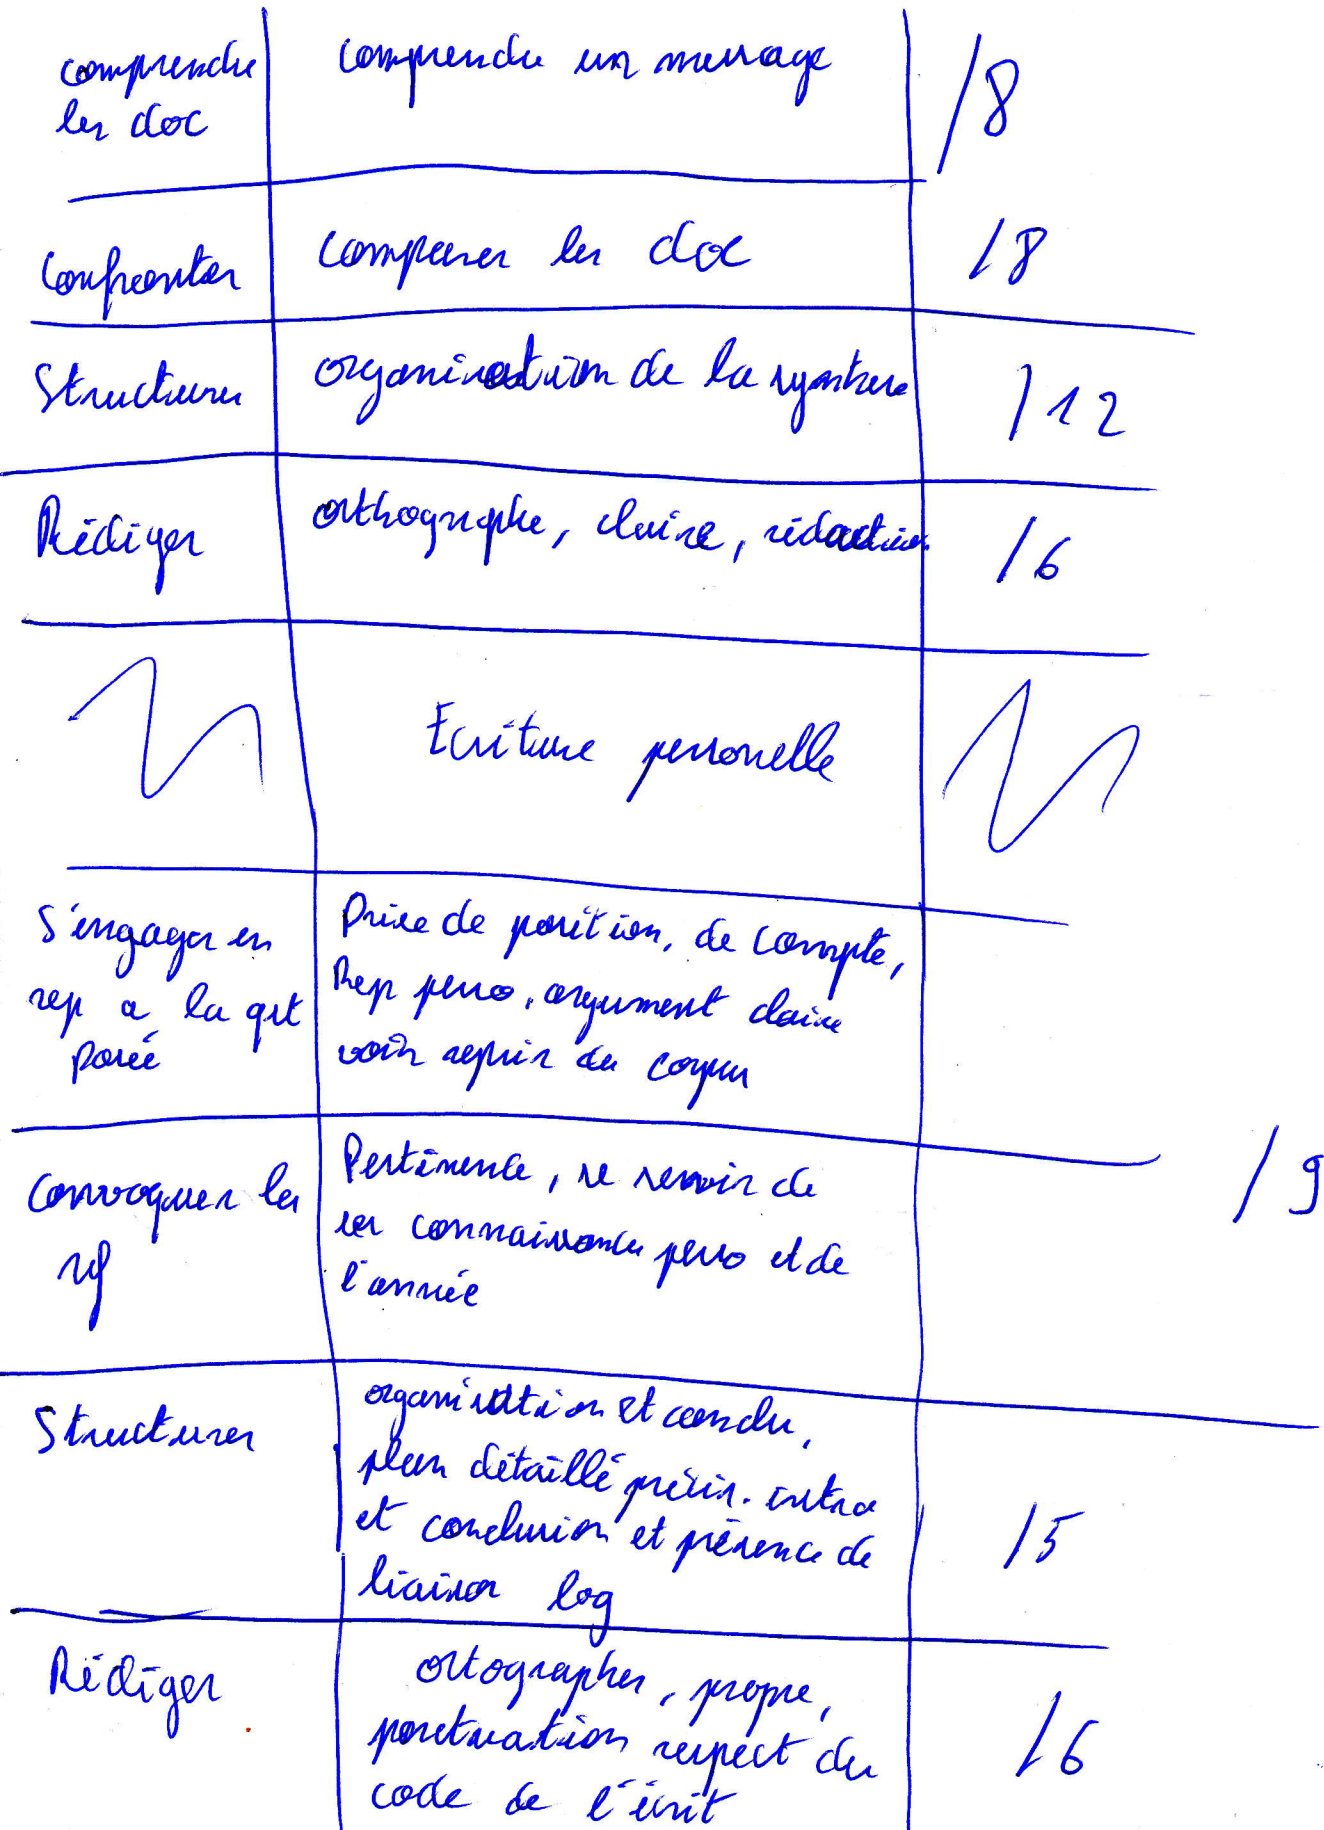 comprendre
les doc
comprendre un message
/8
Confronter
comparer les doc
/8
Structurer
organisation de la synthese
/12
Rédiger
orthographe, claire, rédaction
/6
Ecriture personelle
S'engager en
rep a la qst
posée
Prise de position, de compte,
Rep perso, argument claire
voir repris du corpus
Convoquer les
rf
Pertinence, se servir de
ses connaissances perso et de
l'année
/9
Structurer
organisation et condu,
plan détaillé précis. intro
et conclusion et présence de
liaison log
/5
Rédiger
ortographes, propre,
ponctuation respect du
code de l'écrit
/6